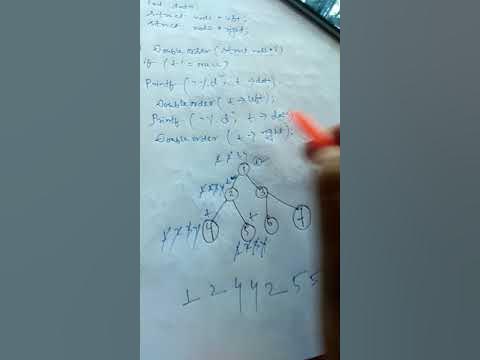 int data;
struct node * left;
struct node * right;
Double order (struct node * t)
if (t != null)
Printf ("%d", t → data)
Double order (t → left);
Printf ("%d", t → data)
Double order (t → right);
1
2 3
4 5 6 7
1 2 4 4 2 5 5